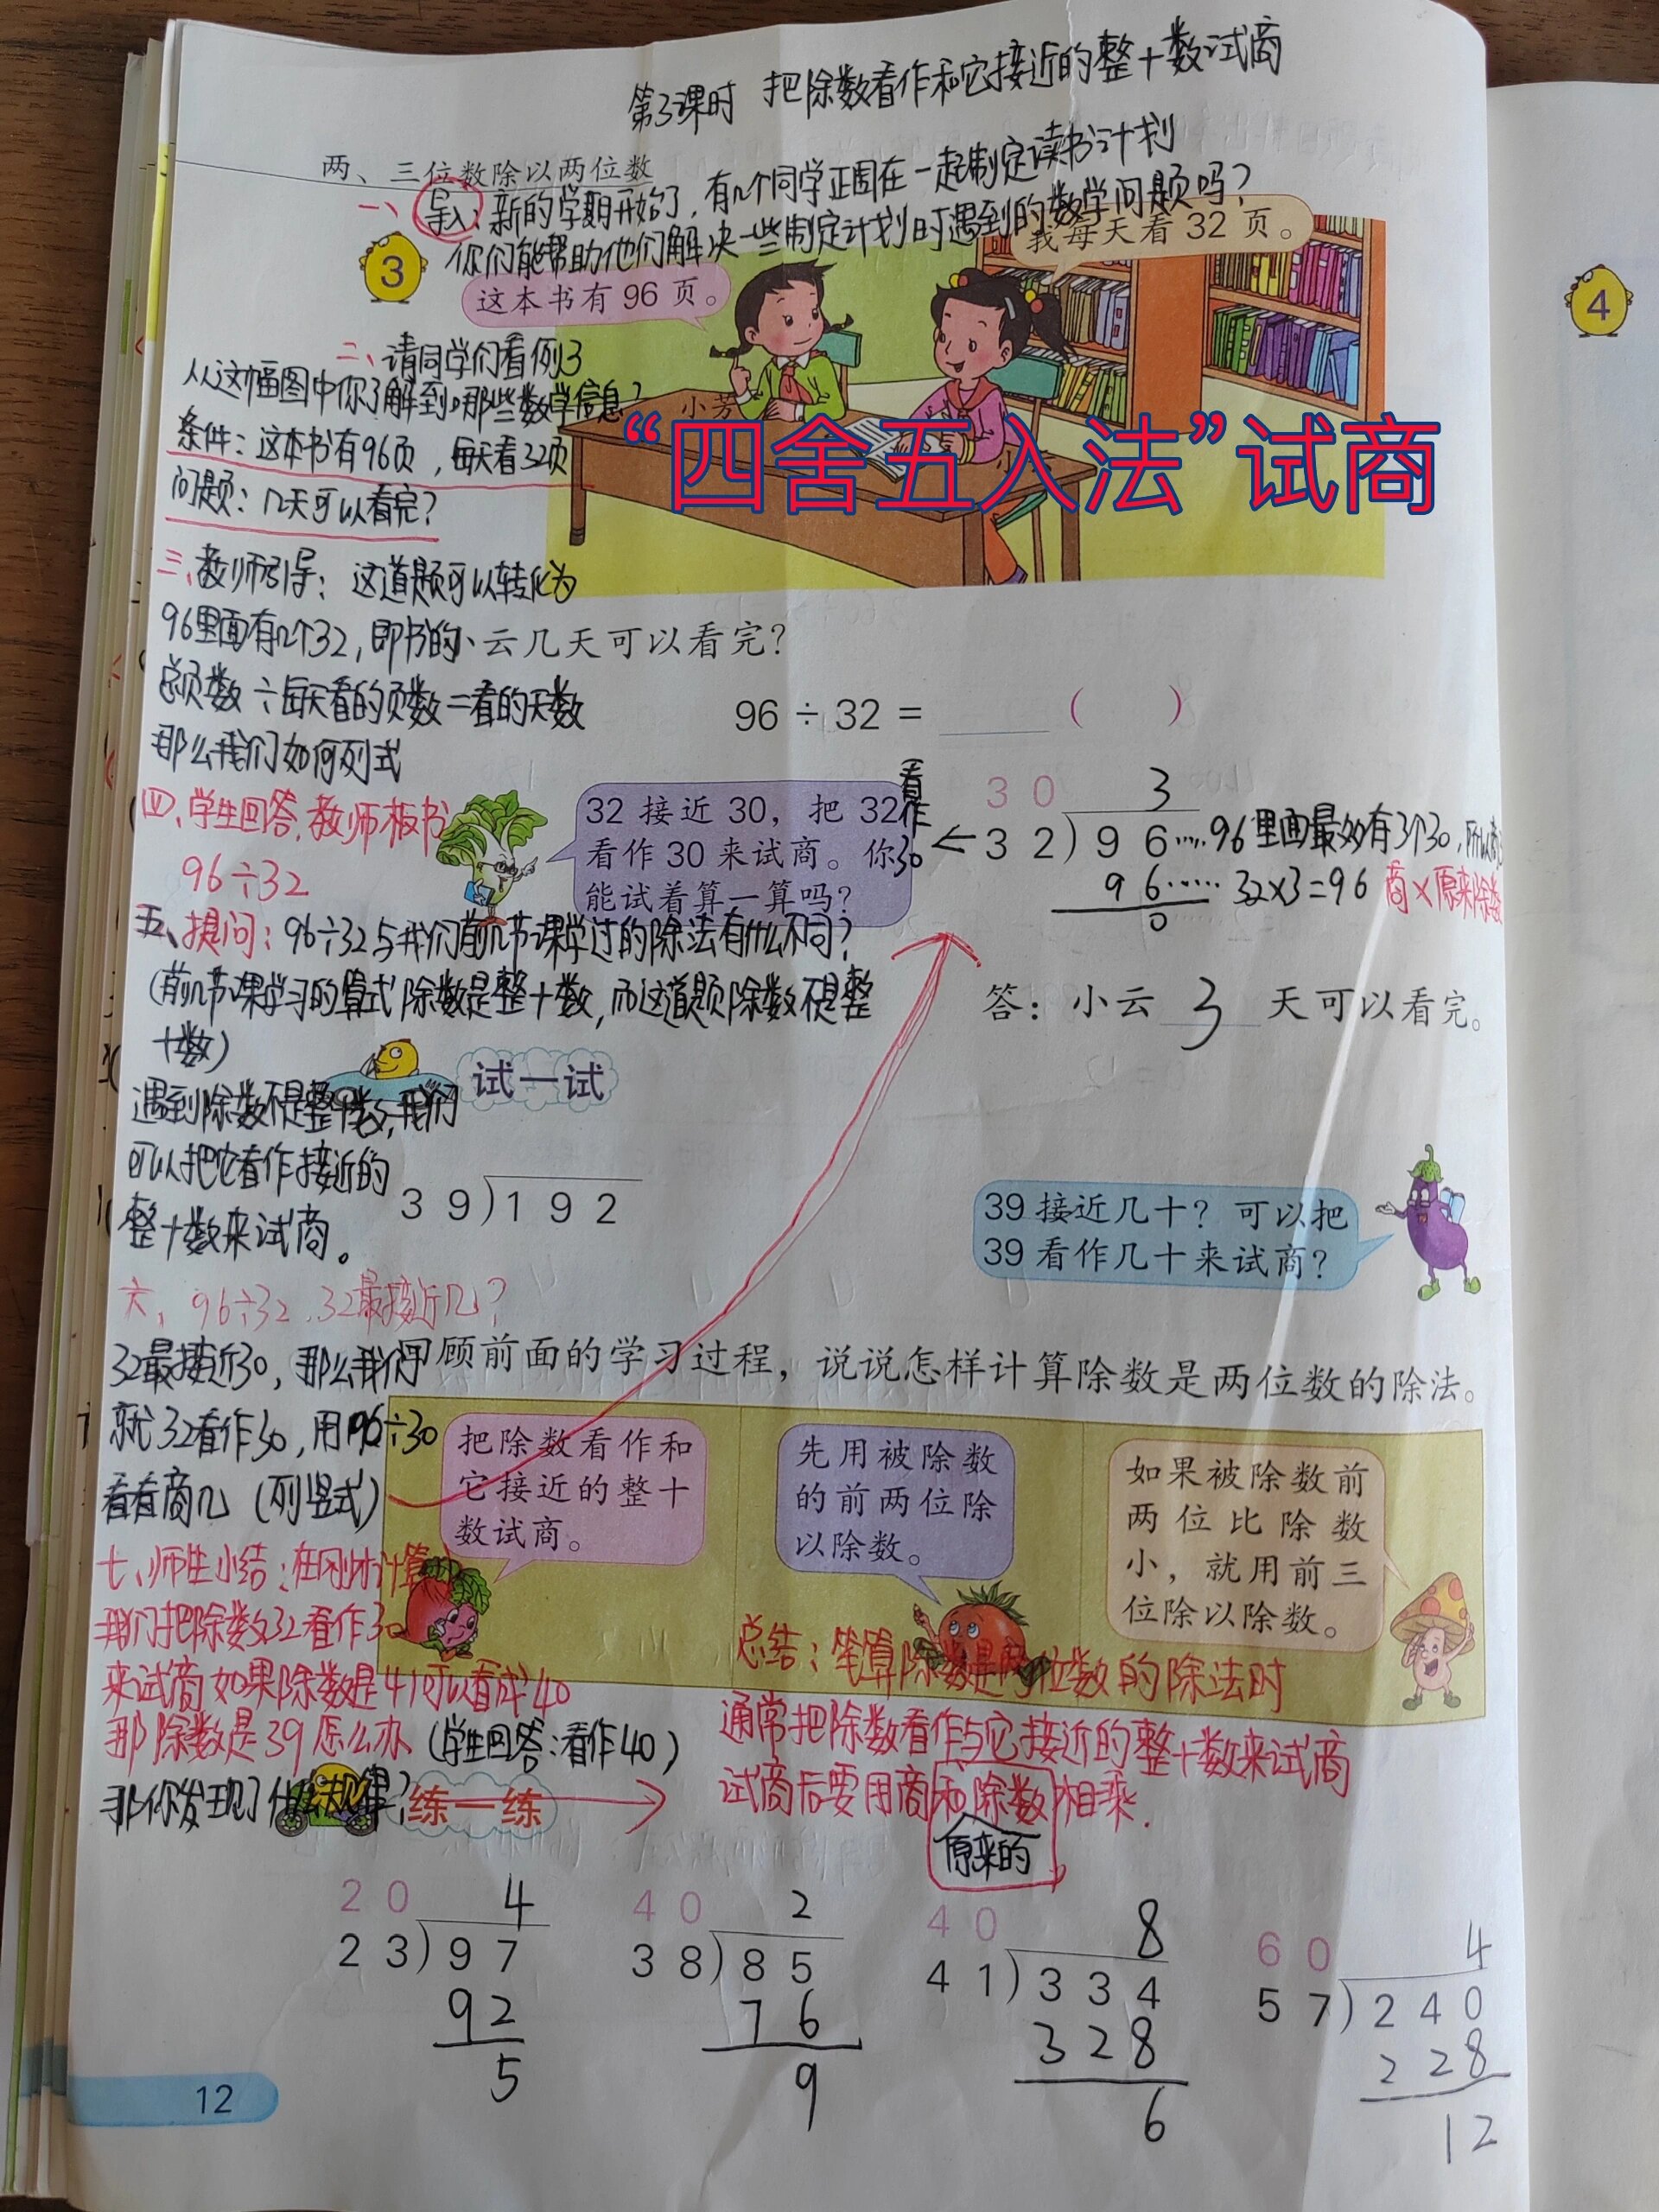 第3课时 把除数看作和它接近的整十数试商
两、三位数除以两位数
一、导入:新的学期开始了,有几个同学正围在一起制定读书计划
你们能帮助他们解决一些制定计划时遇到的数学问题吗?
3
这本书有 96 页。
我每天看 32 页。
4
二、请同学们看例3
从这幅图中你了解到哪些数学信息?
小芳
条件:这本书有96页,每天看32页
问题:几天可以看完?
“四舍五入法”试商
三、教师引导:这道题可以转化为
96里面有几个32,即书的
小云几天可以看完?
总页数÷每天看的页数=看的天数
那么我们如何列式
96 ÷ 32 = ( )
四、学生回答,教师板书
96÷32
32 接近 30,把 32
看作 30 来试商。你
能试着算一算吗?
看作30
30 3
32)96……96里面最多有3个30,所以商3
96……32×3=96 商×原来除数
0
五、提问:96÷32与我们前几节课学过的除法有什么不同?
(前几节课学习的算式除数是整十数,而这道题除数不是整
十数)
答:小云 3 天可以看完。
试一试
遇到除数不是整十数,我们
可以把它看作接近的
整十数来试商。
39)192
39 接近几十?可以把
39 看作几十来试商?
六、96÷32,32最接近几?
32最接近30,那么我们
就32看作30,用96÷30
看看商几(列竖式)
回顾前面的学习过程,说说怎样计算除数是两位数的除法。
把除数看作和
它接近的整十
数试商。
先用被除数
的前两位除
以除数。
如果被除数前
两位比除数
小,就用前三
位除以除数。
七、师生小结:在刚才计算中
我们把除数32看作30
来试商如果除数是41可以看成40
那除数是39怎么办(学生回答:看作40)
那你发现了什么规律?
总结:笔算除数是两位数的除法时
通常把除数看作与它接近的整十数来试商
试商后要用商和除数相乘.
原来的
练一练
20 4
23)97
92
5
40 2
38)85
76
9
40 8
41)334
328
6
60 4
57)240
228
12
12